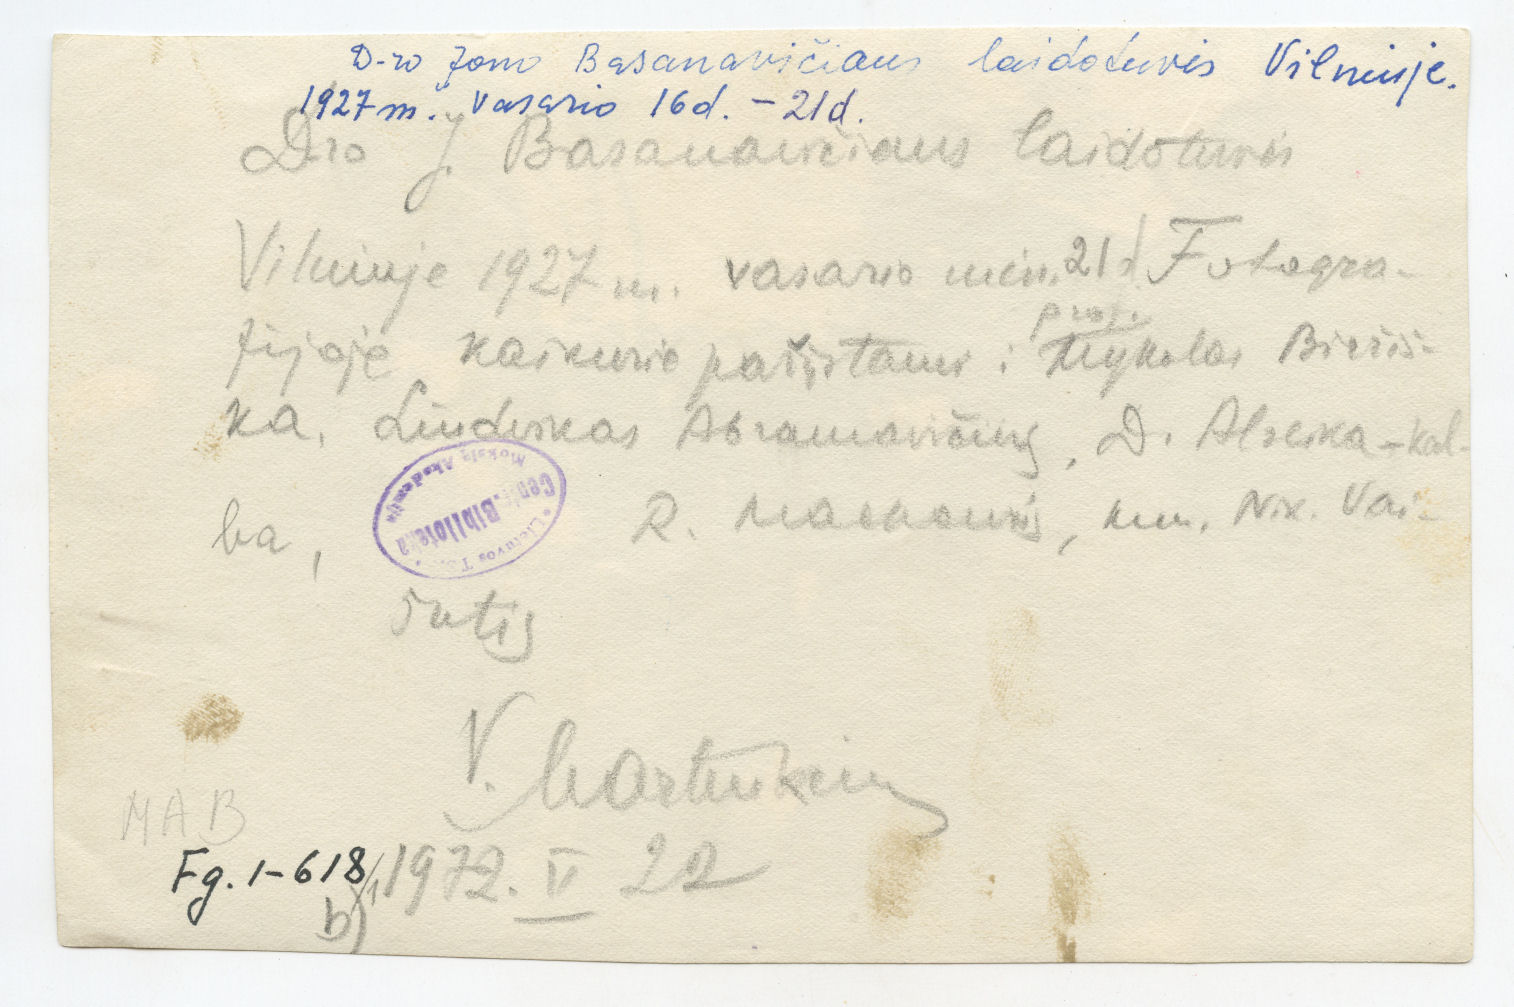 D-ro Jono Basanavičiaus laidotuvės Vilniuje.
1927 m. vasario 16 d. – 21 d.
D-ro J. Basanavičiaus laidotuvės
Vilniuje 1927 m. vasario mėn. 21 d. Fotogra-
fijoje kaikurie pažįstami: prof. Mykolas Biržiš-
ka, Liudvikas Abramavičius, D. Alseika – kal-
ba, R. Mackevičius, kun. Nik. Vai-
šutis
V. Martinkėnas
1972. V 22
MAB
Fg. 1-618/1
b)
Lietuvos TSR
Mokslų Akademijos
Centr. Biblioteka